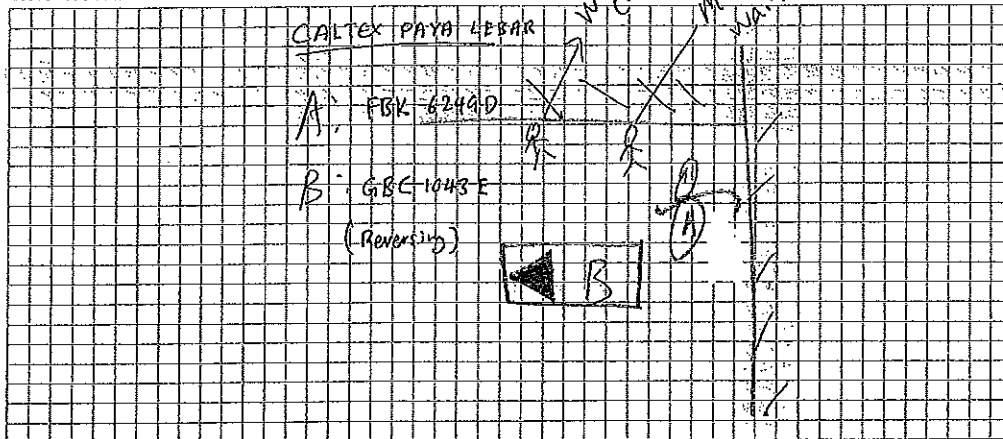 CALTEX PAYA LEBAR
A: FBK 6249D
B: GBC 1043 E
(Reversing)
A
B